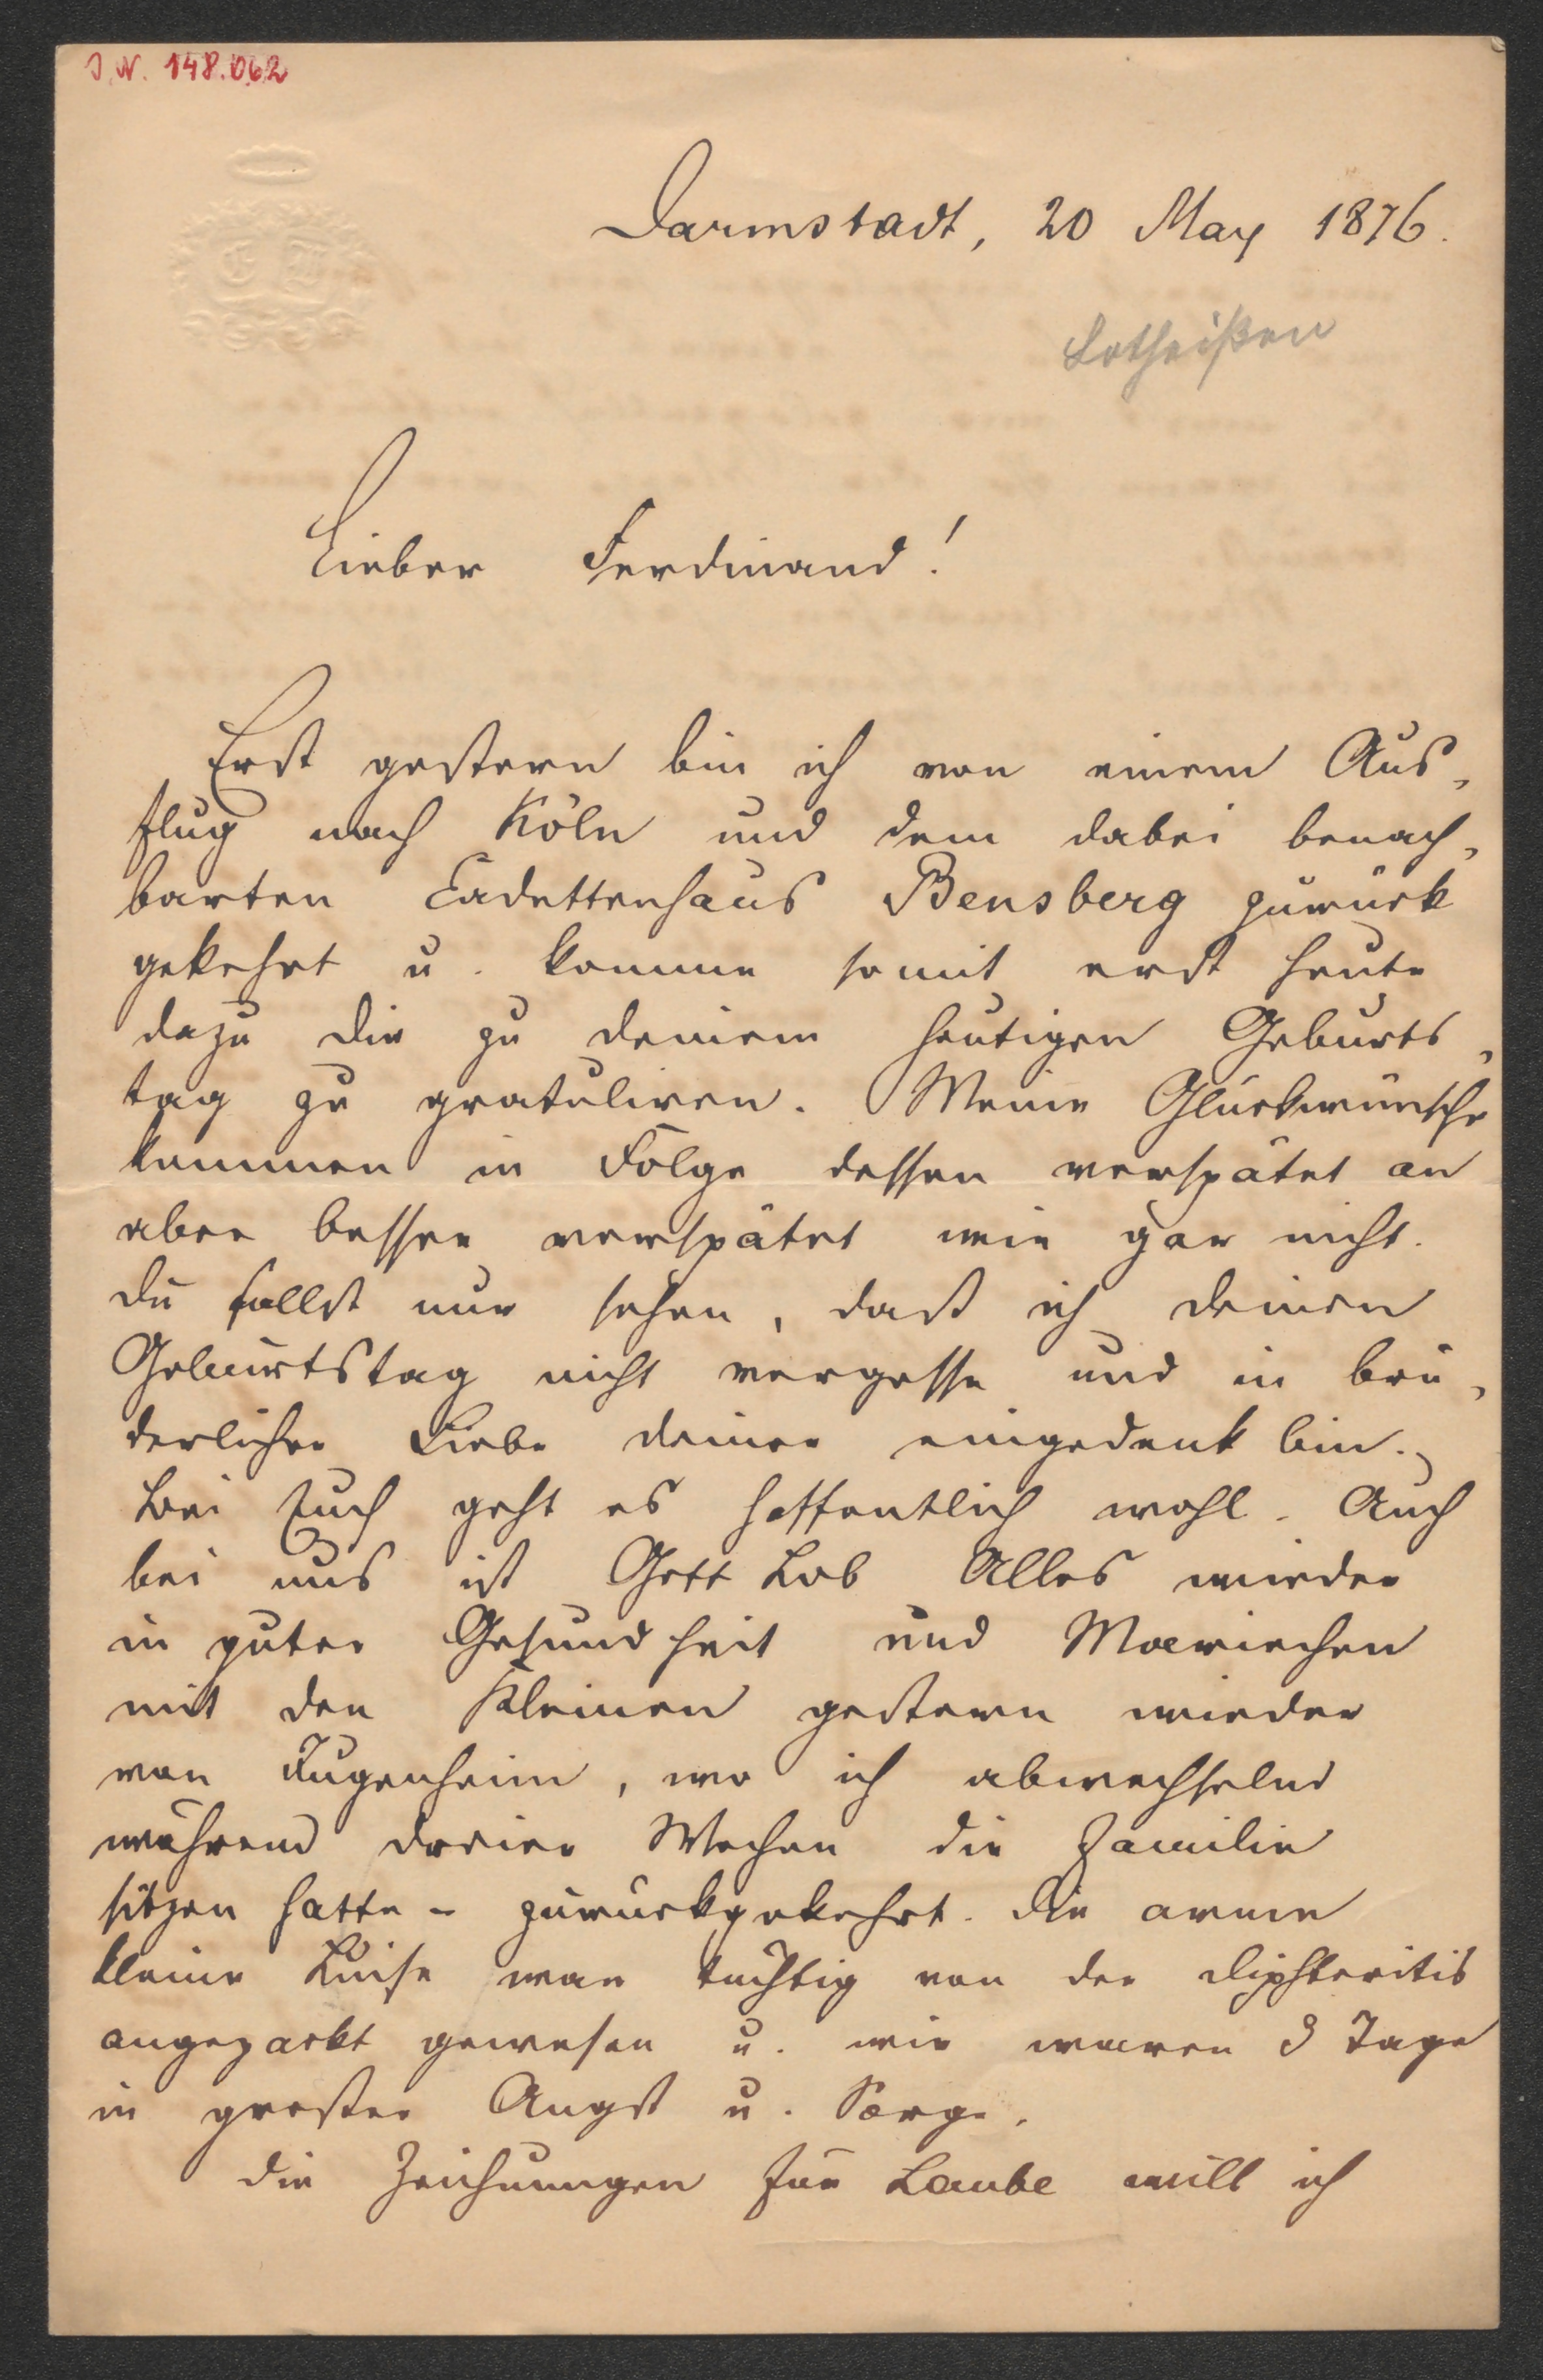 J.N. 148.062
Darmstadt, 20 May 1876.
Lotheißen
Lieber Ferdinand!
Erst gestern bin ich von einem Aus-
flug nach Köln und dem dabei benach-
barten Cadettenhaus Bensberg zurück
gekehrt u. komme somit erst heute
dazu Dir zu Deinem heutigen Geburts-
tag zu gratuliren. Meine Glückwünsche
kommen in Folge dessen verspätet an
aber besser verspätet wie gar nicht.
Du sollst nur sehen, daß ich Deinen
Geburtstag nicht vergesse und in brü-
derlicher Liebe Deiner eingedenk bin.
Bei Euch geht es hoffentlich wohl. Auch
bei uns ist Gott Lob Alles wieder
in guter Gesundheit und Mariechen
mit den Kleinen gestern wieder
von Jugenheim, wo ich abwechselnd
während dreier Wochen die Familie
sitzen hatte - zurückgekehrt. Die arme
kleine Luise war tüchtig von der Diphteritis
angepackt gewesen u. wir waren 3 Tage
in großer Angst u. Sorge.
Die Zeichnungen für Laube will ich